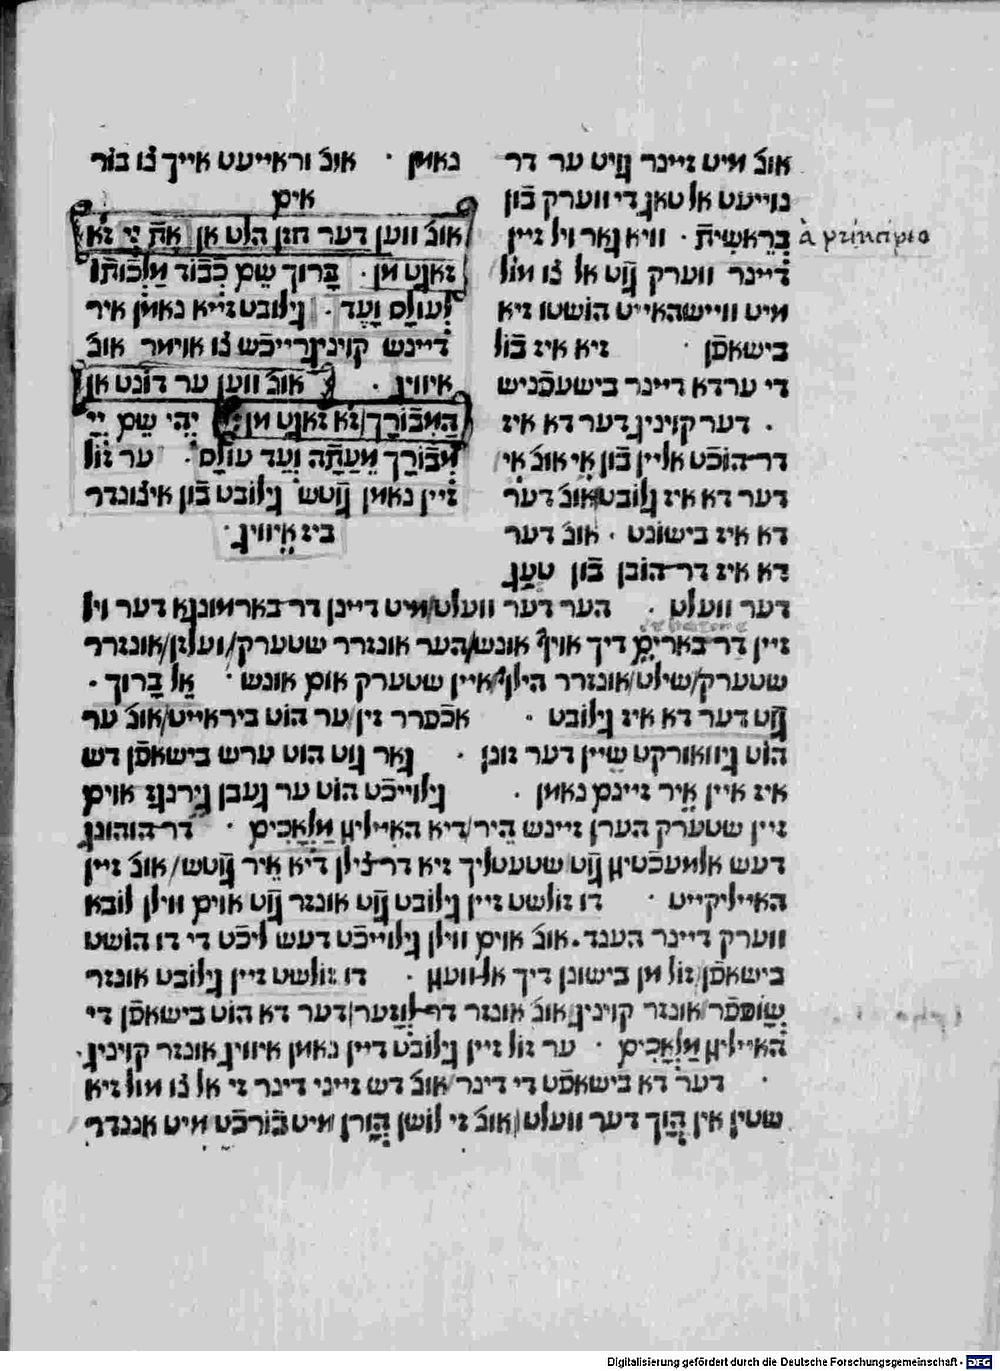 אוב̃ מיט זיינר גויט ער דר
נוייעט אל טאג די ווערק בֿון
בְּרֵאשִׁית · וויא גאר ויל זיין
à principio
דיינר ווערק גוט אל צו מול
מיט ווישהאייט הושטו זיא
בישאפֿן · זיא איז בֿול
די ערדא דיינר בישעפֿניש
· דער קוינינג דער דא איז
דר הוכֿט אליין בֿון אי אוב̃ אי
דער דא איז גילובט אוב̃ דער
דא איז בישונט · אוב̃ דער
דא איז דר הובן בֿון טעגן
נאמן · אוב̃ וראייעט אייך צו בור
אים
אוב̃ ווען דער חזן הלט אן אַתָּ יְיָ זא
זאגט מן · בָּרוּךְ שֵׁם כְּבוֹד מַלְכוּתוֹ
לְעוֹלָם וָעֶד · גילובט זייא נאמן איר
דיינש קוינינגרייכֿש צו אוימר אוב̃
איוויג · אוב̃ ווען ער דונט אן
הַמְבוֹרָךְ זא זאגט מן יְהִי שֵׁם יְיָ
מְבוֹרָךְ מֵעַתָּה וְעַד עוֹלָם · ער זול
זיין נאמן גוטש גילובט בֿון איצונדר
ביז איוויג ·
דער וועלט · הער דער וועלט/מיט דיינן דר בארמונגא דער ויל
זיין דר בארים דיך אויף אונש/הער אונזרר שטערק/ועלזן/אונזרר
שטערק/שילט/אונזרר הילף/איין שטערק אום אונש · אֵל בָּרוּךְ ·
גוט דער דא איז גילובט · אכֿפרר זין/ער הוט ביראייט/אוב̃ ער
הוט גיוואורקט שיין דער זונן · גאר גוט הוט ערש בישאפֿן דש
איז איין איר זיינם נאמן · גילוייכֿט הוט ער געבן גירנגז אוים
זיין שטערק הערן זיינש היר/דיא האייליגן מַלְאָכִים · דר הוהונג
דעש אלמעכֿטיגן גוט שטעטליך זיא דר צילן דיא איר גוטש/אוב̃ זיין
האייליקייט · דו זולשט זיין גילובט גוט אונזר גוט אוים ווילן לובא
ווערק דיינר הענד. אוב̃ אוים ווילן גילוייכֿט דעש ליכֿט די דו הושט
בישאפֿן/זול מן בישונן דיך אלוועג · דו זולשט זיין גילובט אונזר
שופפֿר/אונזר קוינינג/אוב̃ אונזר דר לוזער/דער דא הוט בישאפֿן די
האייליגן מַלְאָכִים · ער זול זיין גילובט דיין נאמן איוויג אונזר קוינינג ·
· דער דא בישאפֿט די דינר/אוב̃ דש זייני דינר זי אל צו מול זיא
שטין אין הוך דער וועלט/אוב̃ זי לושן הורן/מיט בֿורכֿט מיט אננדר